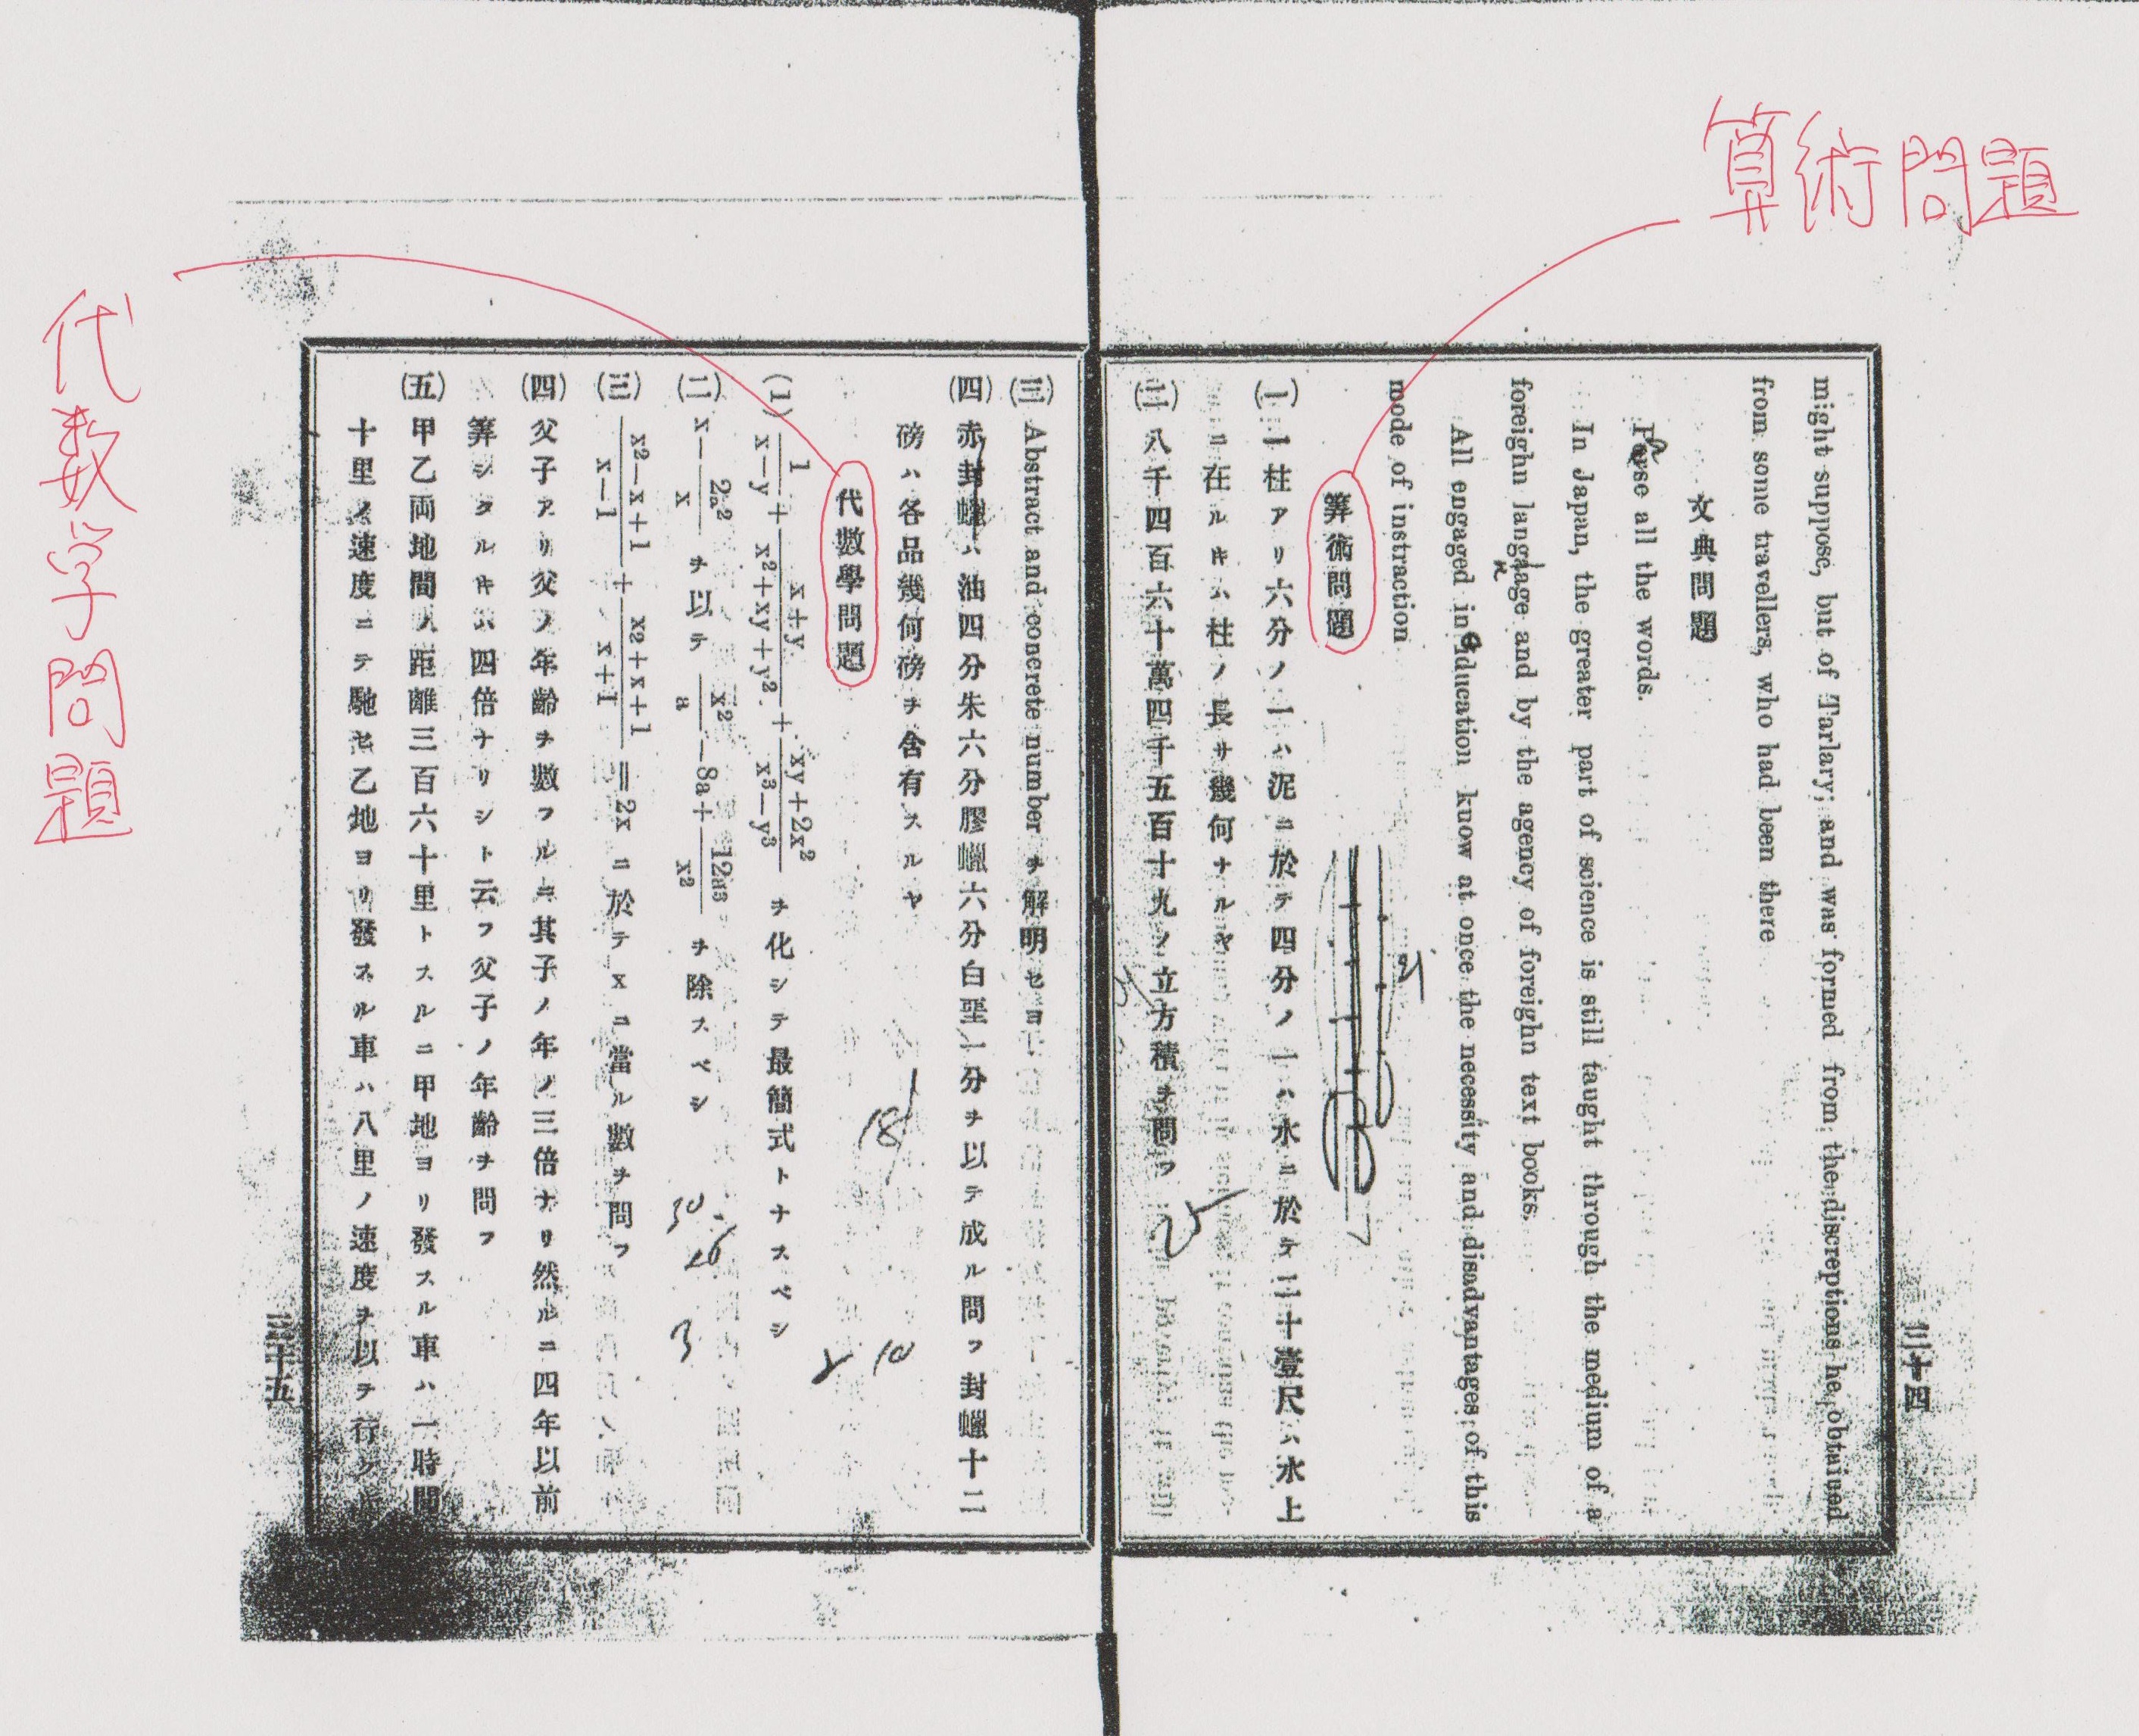 算術問題
might suppose, but of Tarlary; and was formed from the discreptions he obtained
from some travellers, who had been there
文典問題
Parse all the words.
In Japan, the greater part of science is still taught through the medium of a
foreighn langaage and by the agency of foreighn text books.
All engaged in education kuow at once the necessity and disadvantages of this
mode of instraction
算術問題
(一)一柱アリ六分ノ一ハ泥ニ於テ四分ノ一ハ水ニ於ケ二十壹尺ハ水上
ニ在ルキハ柱ノ長サ幾何ナルヤ
(二)八千四百六十萬四千五百十九ノ立方積ヲ問フ
三十四
(三)Abstract and concrete number ヲ解明セヨ
(四)赤封蠟ハ油四分朱六分膠蠟六分白堊一分ヲ以テ成ル問フ封蠟十二
磅ハ各品幾何磅ヲ含有スルヤ
代數學問題
(1) 1/(x−y) + (x+y)/(x²+xy+y²) + (xy+2x²)/(x³−y³) ヲ化シテ最簡式トナスベシ
(二) x − 2a²/x ヲ以テ x²/a − 8a + 12a³/x² ヲ除スベシ
(三) (x²−x+1)/(x−1) + (x²+x+1)/(x+1) = 2x ニ於テxニ當ル數ヲ問フ
(四)父子アリ父ノ年齢ヲ數フルニ其子ノ年ノ三倍ナリ然ルニ四年以前
算シタルキハ四倍ナリシト云フ父子ノ年齢ヲ問フ
(五)甲乙両地間ノ距離三百六十里トスルニ甲地ヨリ發スル車ハ一時間
十里ノ速度ニテ馳セ乙地ヨリ發スル車ハ八里ノ速度ヲ以テ行ク
三十五
代数学問題
18
10
30
26
3
25